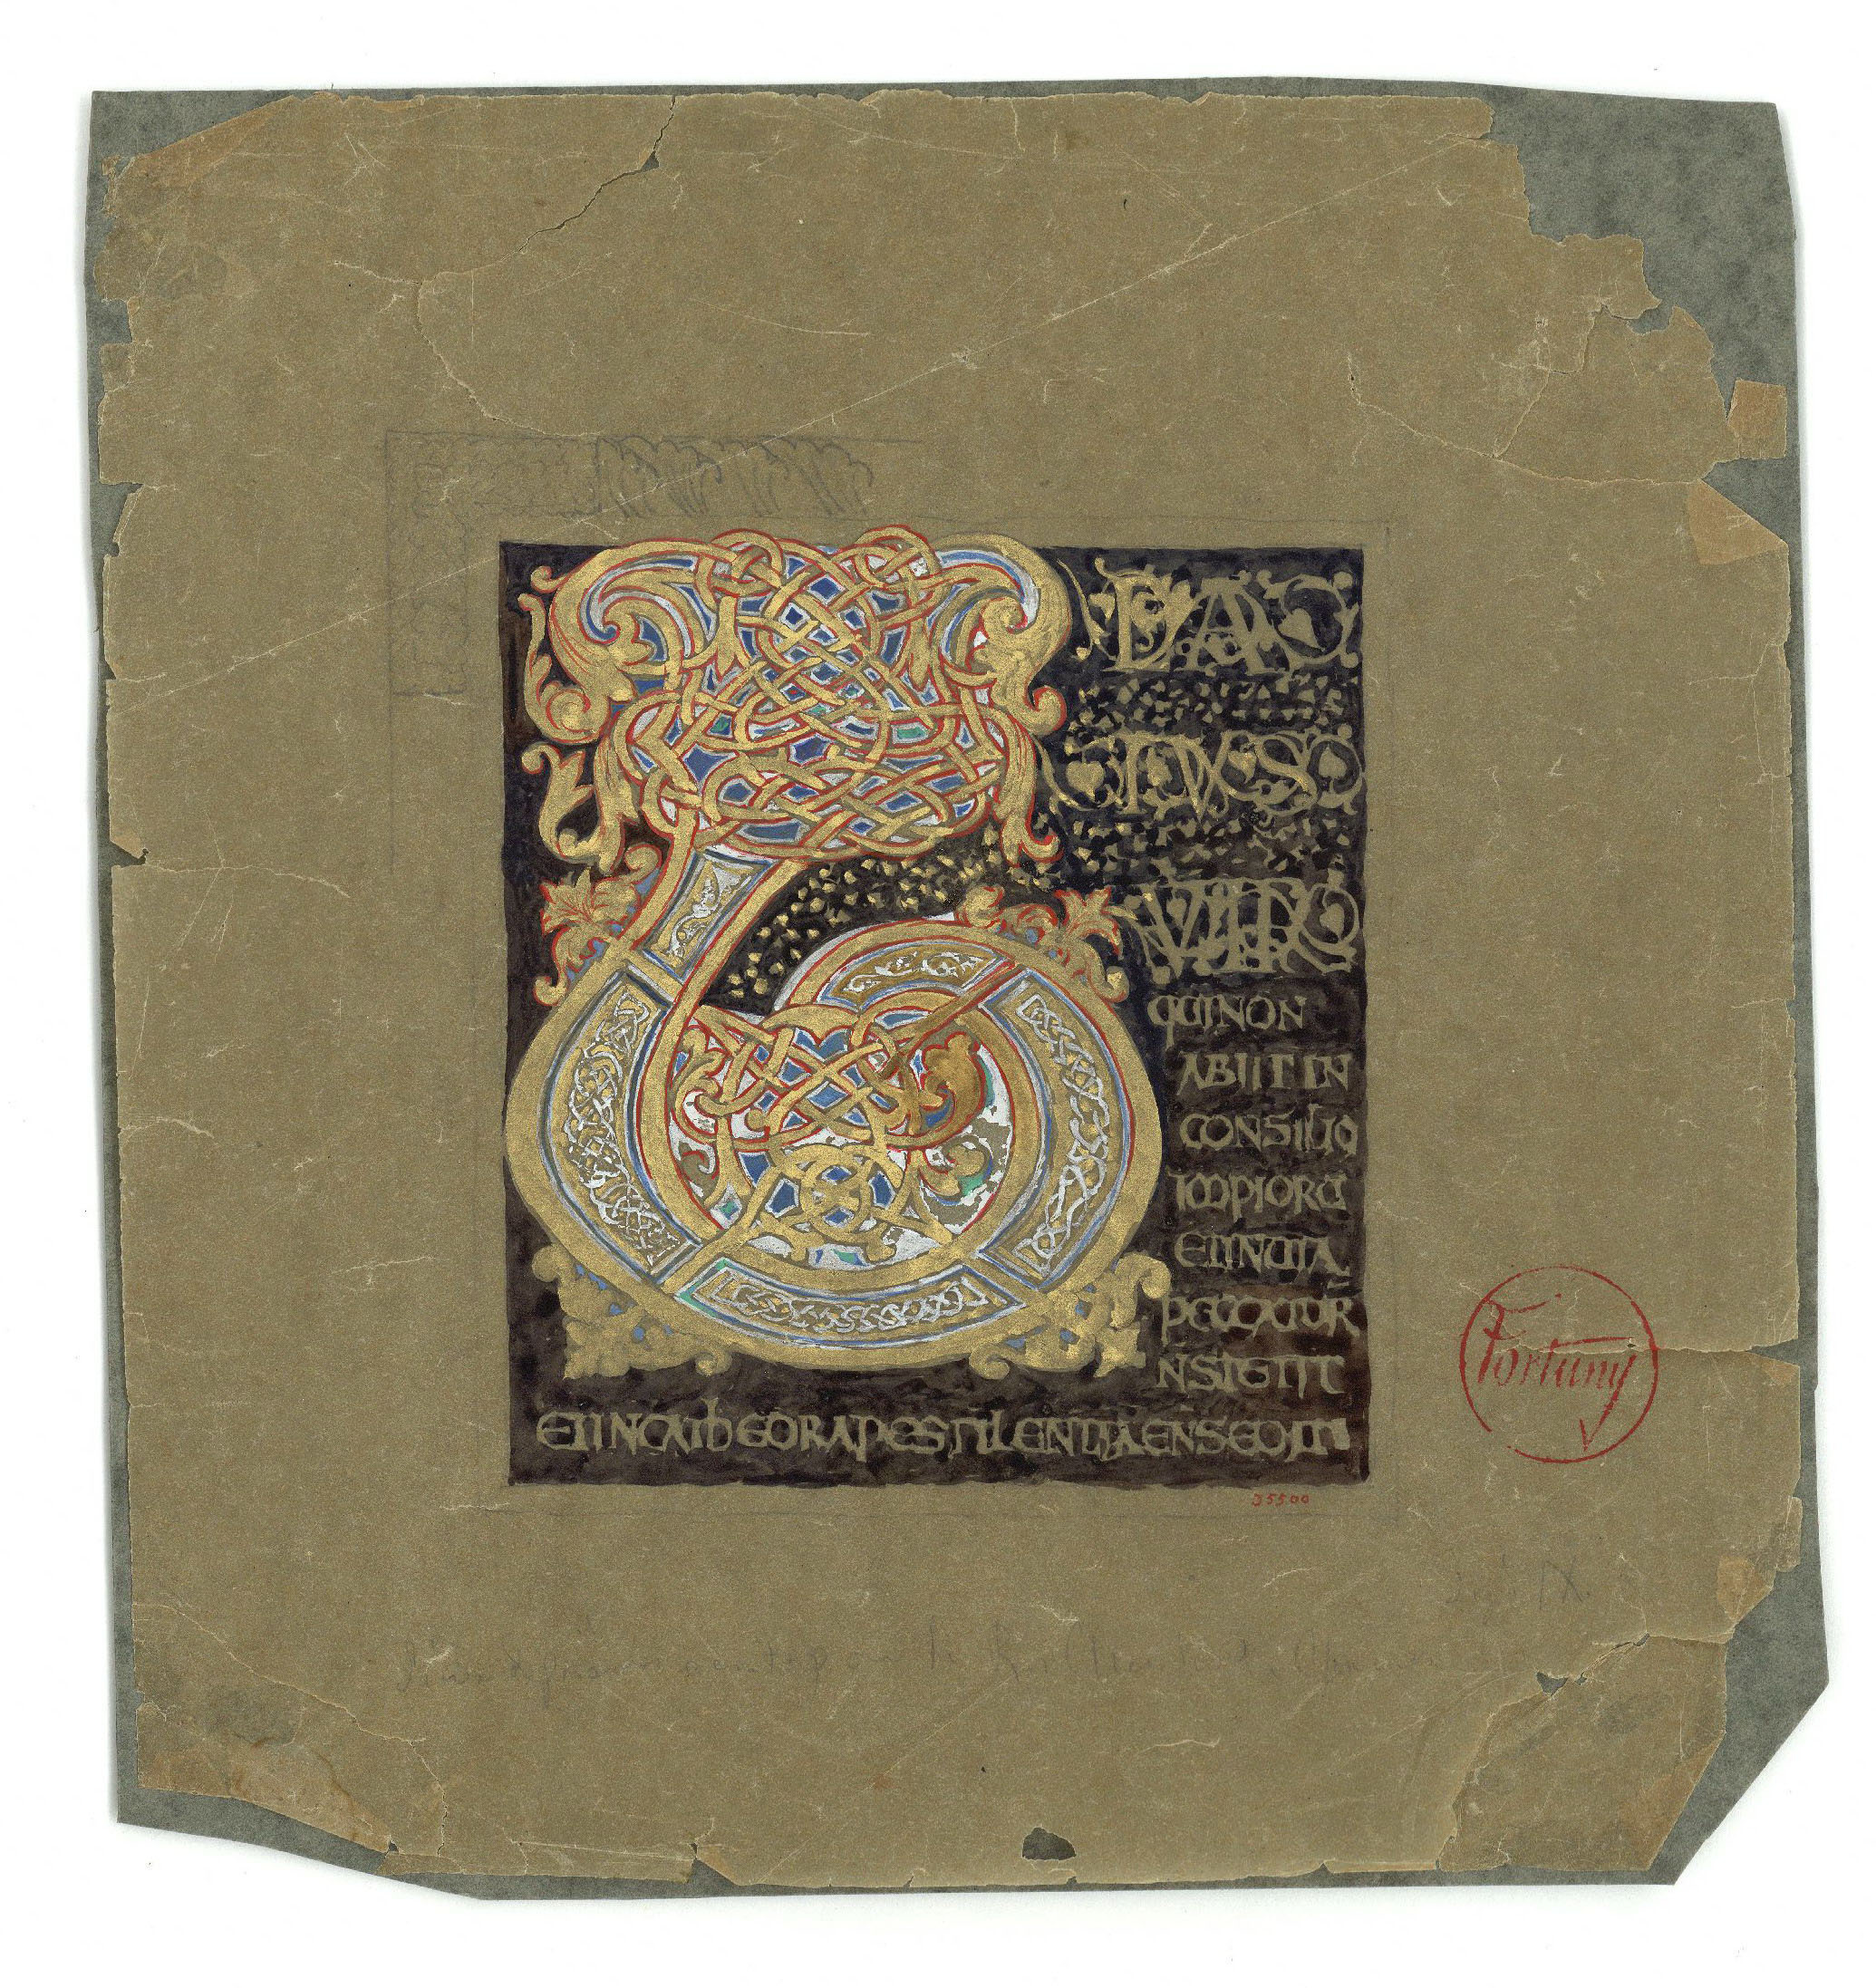 B EAT
TVS
VIR
QUI NON
ABIIT IN
CONSILIO
IMPIORU
ET IN UIA
PECCATOR
N STETIT
ET IN CATHEDRA PESTILENTIAE N SEDIT
Fortuny
35500
IX.